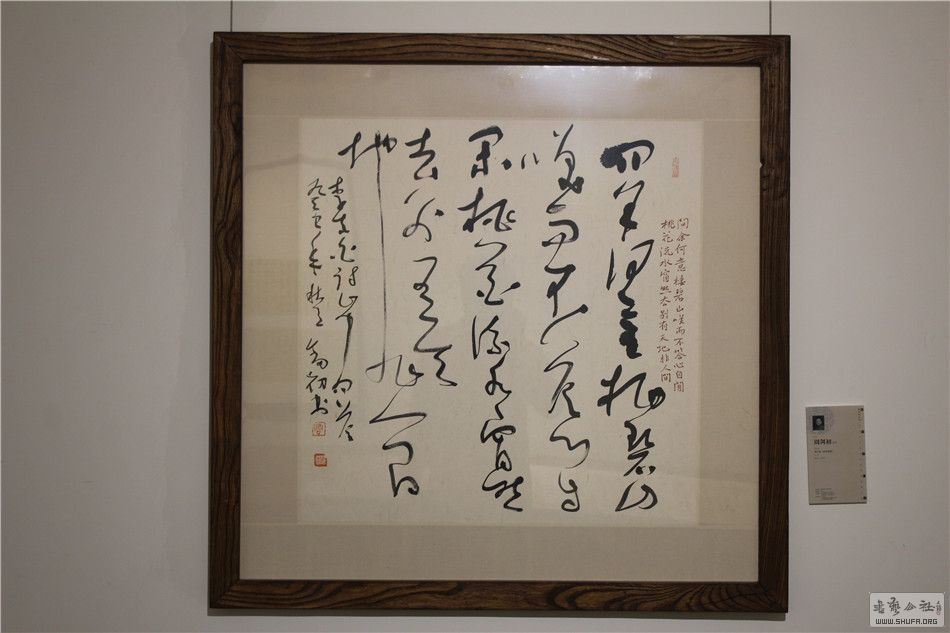 問余何意棲碧山咲而不答心自閒
桃花流水窅然去別有天地非人間
問余何意栖碧山
笑而不答心自
閑桃花流水窅然
去別有天
地非人間
李太白詩山中问答
癸巳年秋 初书
书艺公社
WWW.SHUFA.ORG